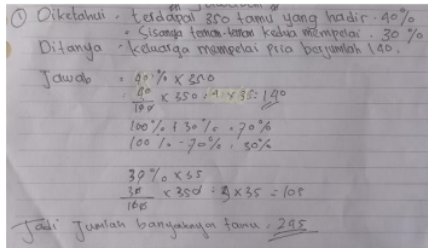 ① Diketahui : terdapat 350 tamu yang hadir . 40%
• Sisanya teman-teman kedua mempelai . 30%
Ditanya : keluarga mempelai pria berjumlah 140.
Jawab = 40% x 350
= 40/100 x 350 = 4 x 35 = 140
100% + 30% = 70%
100% - 70% = 30%
30% x 35
30/100 x 350 = 3 x 35 = 105
Jadi Jumlah banyaknya tamu = 245